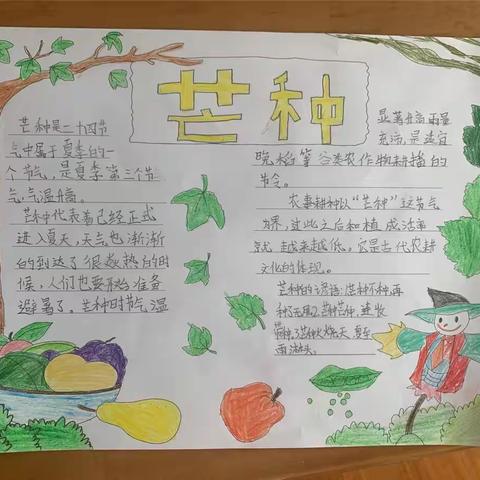 芒种
芒种是二十四节
气中属于夏季的一
个节气,是夏季第三个节
气,气温升高。
芒种代表着已经正式
进入夏天,天气也渐渐
的到达了很炎热的时
候,人们也要开始准备
避暑了。芒种时节气温
显著升高雨量
充沛,是适宜
晚稻等谷类农作物耕播的
节令。
农事耕种以“芒种”这节气
为界,过此之后种植成活率
就越来越低,它是古代农耕
文化的体现。
芒种的谚语:芒种不种,再
种无用
夏至
雨